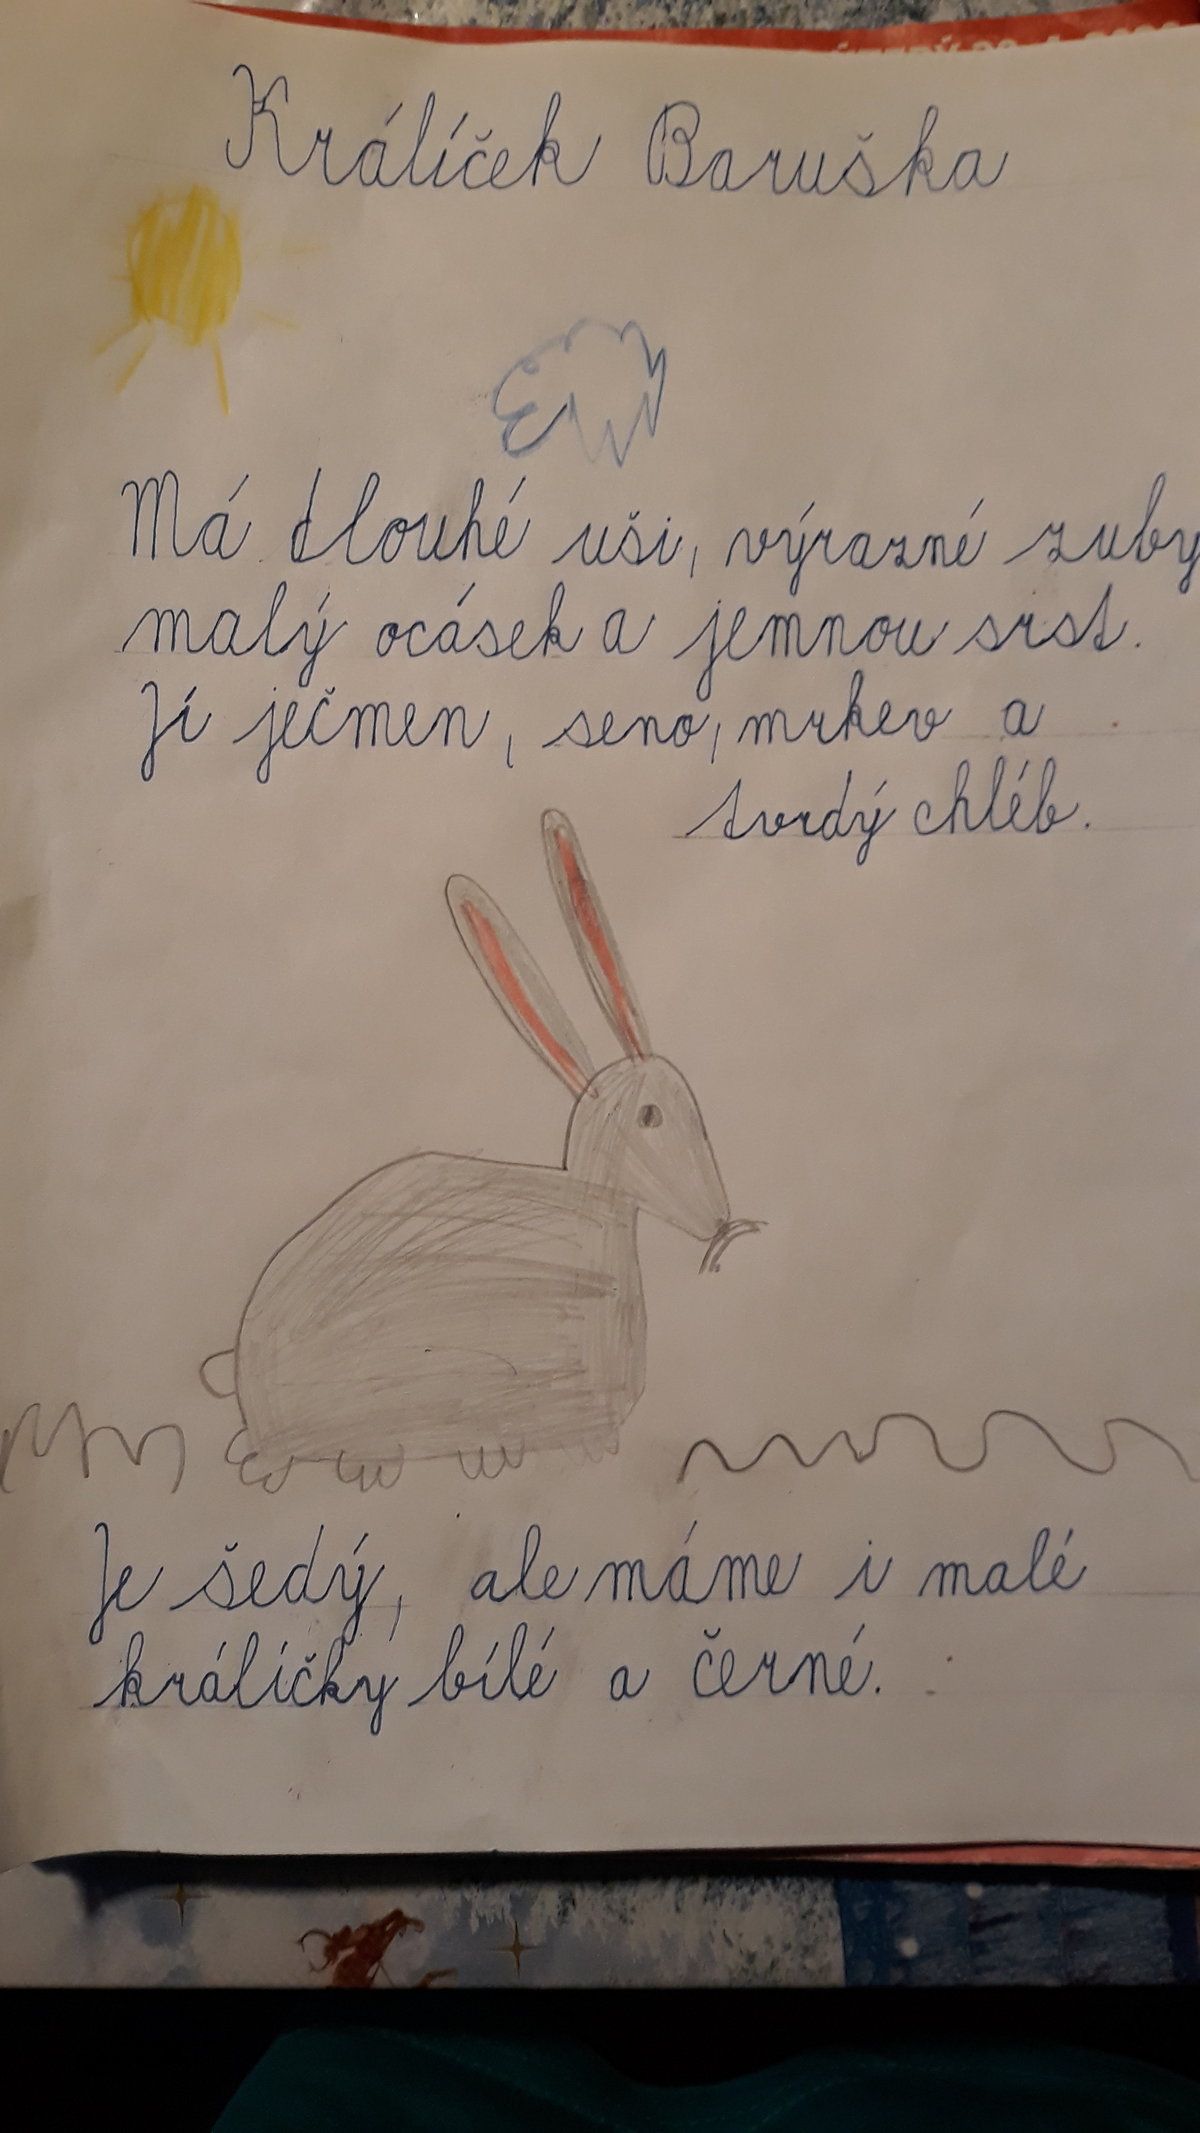 Králíček Baruška
Má dlouhé uši, výrazné zuby
malý ocásek a jemnou srst.
Jí ječmen, seno, mrkev a
tvrdý chléb.
Je šedý, ale máme i malé
králíčky bílé a černé.